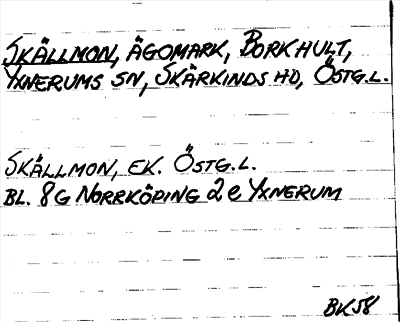 SKÄLLMON, ÄGOMARK, BORKHULT,
YXNERUMS SN, SKÄRKINDS HD, ÖSTG.L.
SKÄLLMON, EK. ÖSTG.L.
BL. 8G NORRKÖPING 2e YXNERUM
BK58